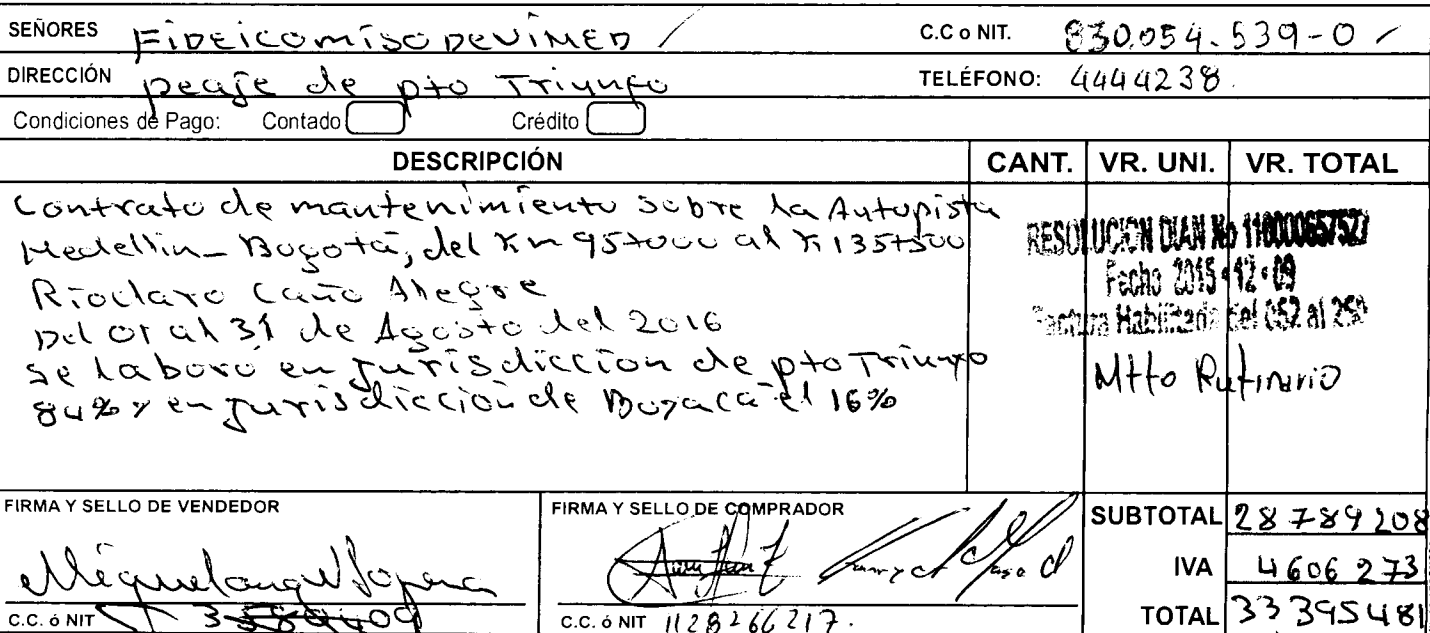 SEÑORES FIDEICOMISO DEVIMED C.C o NIT. 830.054.539-0
DIRECCIÓN peaje de pto Triunfo TELÉFONO: 4444238.
Condiciones de Pago: Contado Crédito
DESCRIPCIÓN CANT. VR. UNI. VR. TOTAL
Contrato de mantenimiento sobre la Autopista
Medellin - Bogotá, del Km 95+000 al K 135+500
Rioclaro Caño Alegre
Del 01 al 31 de Agosto del 2016
se laboró en Jurisdiccion de pto Triunfo
84% y en Jurisdicción de Boyacá el 16%
RESOLUCION DIAN No 110000657527
Fecha 2015-12-09
Factura Habilitada del 052 al 250
Mtto Rutinario
FIRMA Y SELLO DE VENDEDOR FIRMA Y SELLO DE COMPRADOR SUBTOTAL 28 789 208
IVA 4606 273
C.C. ó NIT C.C. ó NIT 1128266217. TOTAL 33 395 481